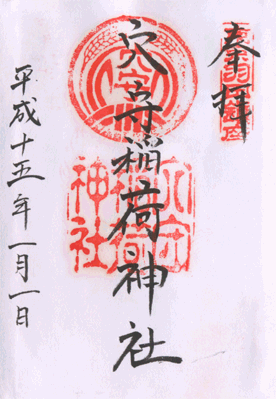 奉拝
穴守稲荷神社
平成十五年一月一日